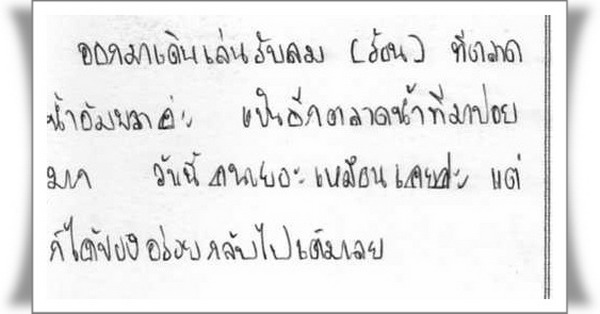 ออกมาเดินเล่นรับลม (ร้อน) ที่ตลาด
น้ำอัมพวาค่ะ เป็นอีกตลาดน้ำที่มาบ่อย
มาก วันนี้คนเยอะเหมือนเคยค่ะ แต่
ก็ได้ของอร่อยกลับไปเต็มเลย